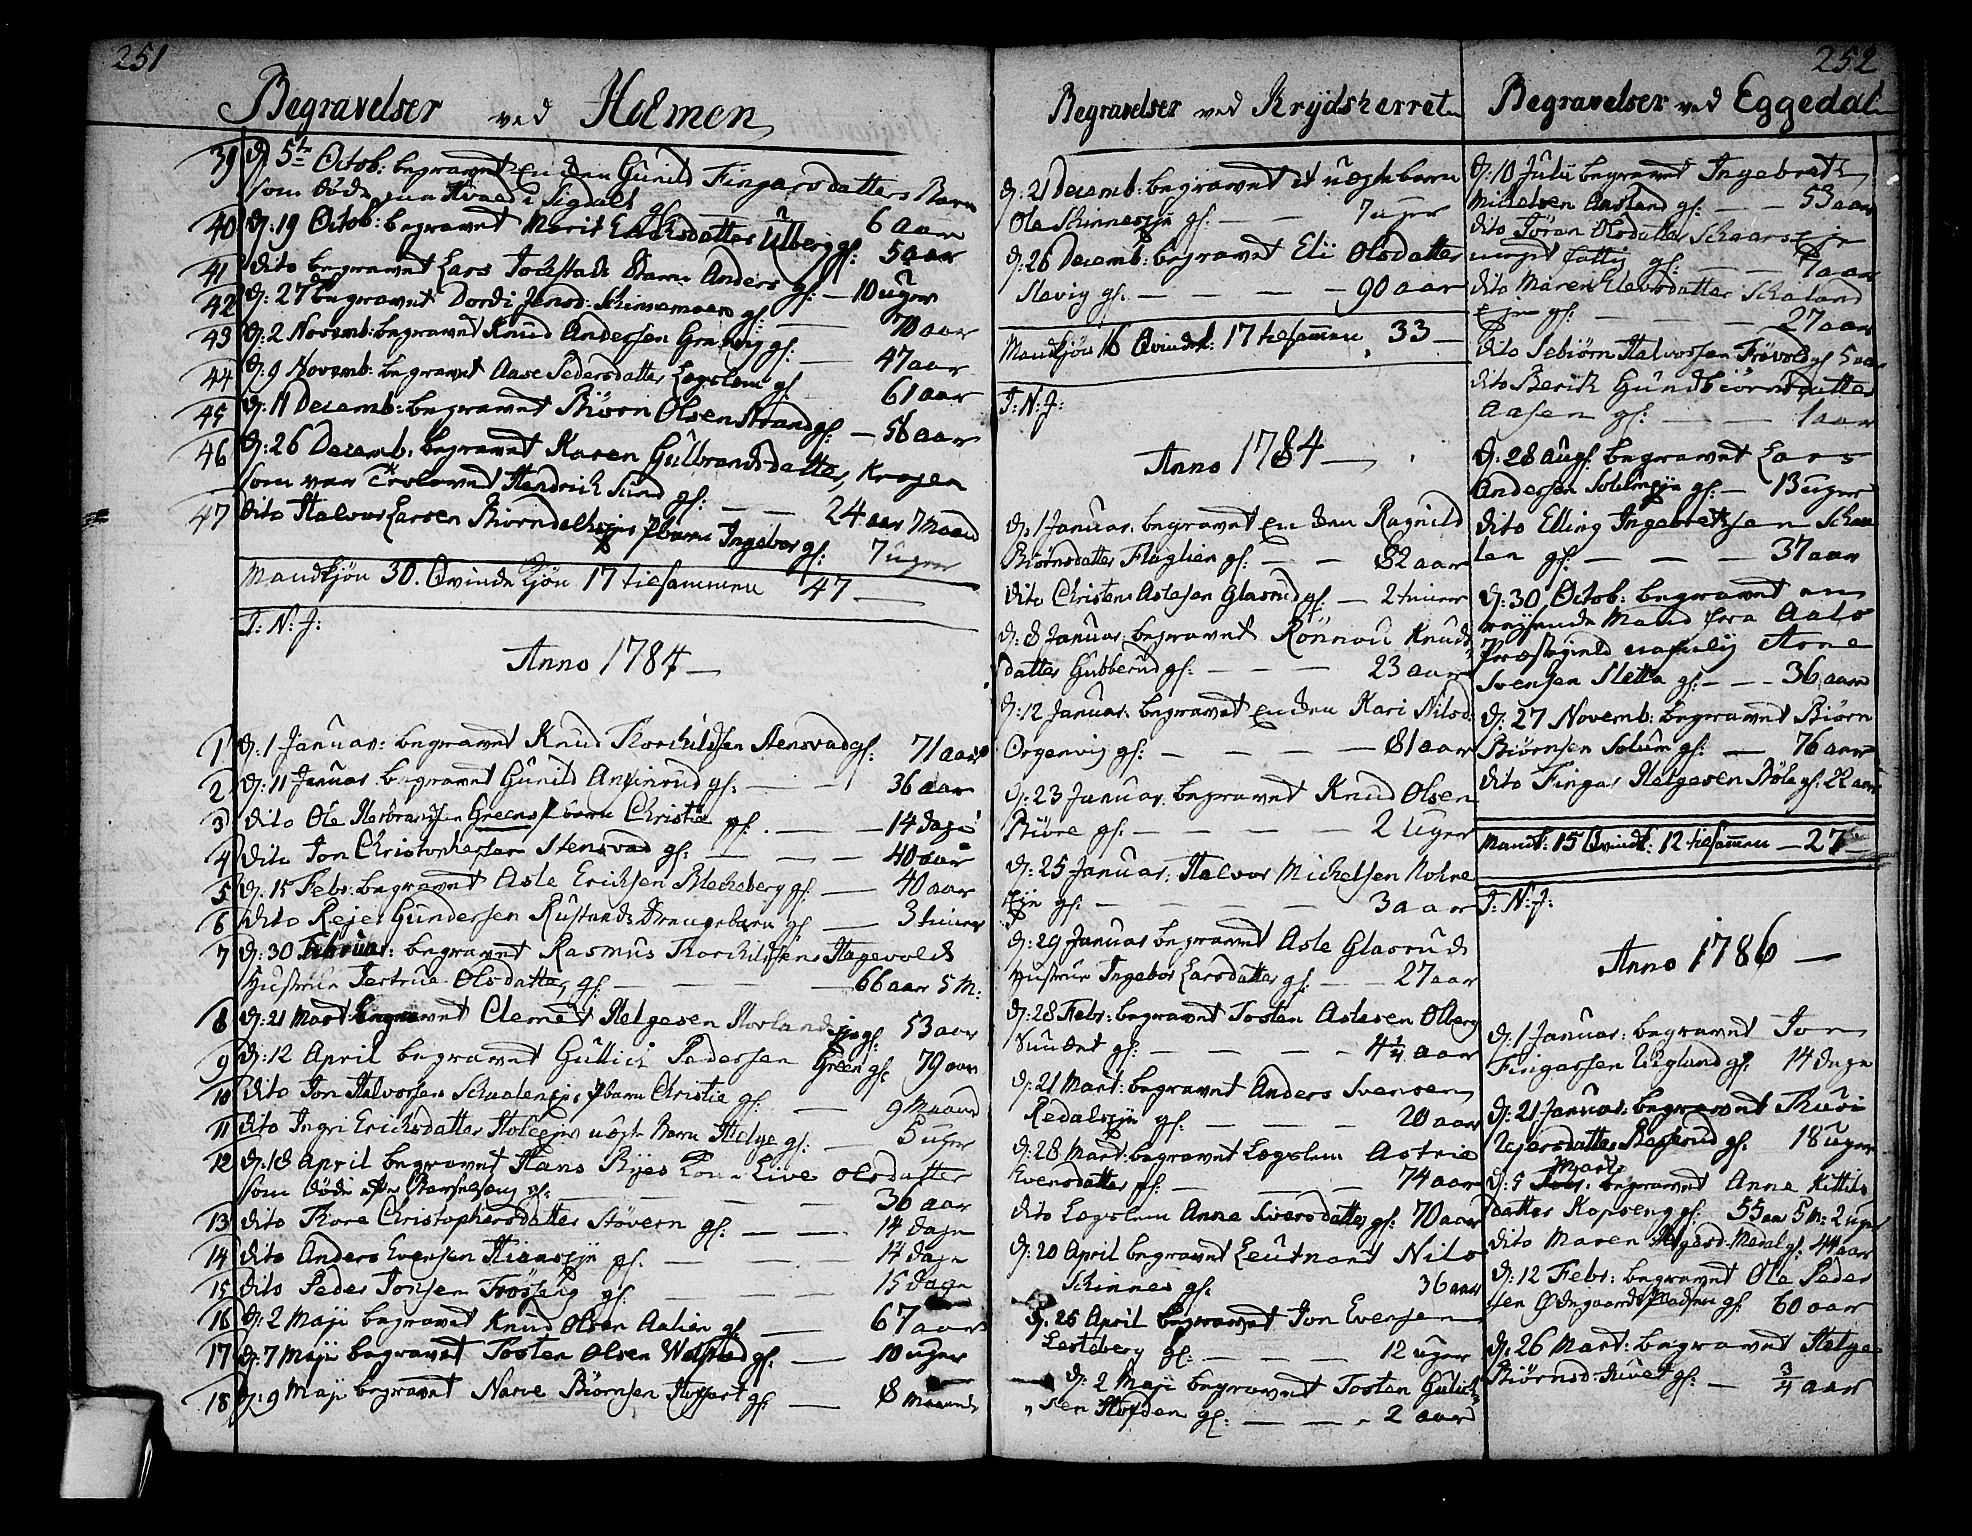 251
Begravelser ved Holmen
39 d: 5te Octob: begravet en den Gunild Fingarsdatters Barn
som døde paa Hvaal i Sigdal gf: 6 aar
40 d: 19 Octob: begravet Marit Erichsdatter Ulberg gf: 5 aar
41 dito begravet Lars Jochstads Barn Anders gf: — 10 uger
42 d: 27 begravet Dordi Jensd: Skinnemoen gf: — 70 aar
43 d: 2 Novemb: begravet Knud Andersen Gravlig gf: — 47 aar
44 d: 9 Novemb: begravet Aase Pedersdatter Lægslem gf — 61 aar
45 d: 11 Decemb: begravet Biørn Olsen Strand gf: — 56 aar
46 d: 26 Decemb: begravet Karen Gulbrandsdatter, Kragen
som var Trolovet Hendrich Lund gf: — — 24 aar 7 maan
47 dito Halvor Larsen Biørndalseyes Pbarn Ingebor gf: 7 uger
Mandkjøn 30. Qvinde Kjøn 17 tilsammen 47 —
I: N: J:
Anno 1784 —
1 d: 1 Januar: begravet Knud Thorchildsen Stensvad gf: 71 aar
2 d: 11 Januar begravet Gunild Amunrud gf: — — 36 aar
3 dito Ole Herbrandsen Greens Pbarn Christie gf: — — 14 dage
4 dito Jon Christophersen Stensvad gf: — — — 40 aar
5 d: 15 Febr: begravet Asle Erichsen Blechsberg gf: — 40 aar
6 dito Rejer Gundersen Rustands Drengebarn gf — 3 timer
7 d: 30 Februar: begravet Rasmus Thorchildsens Hagevolds
Hustrue Jertrue Olsdatter gf: — — — 66 aar 5 M:
8 d: 21 Mart begravet Clemet Helgesen Horlands eje gf: 53 aar
9 d: 12 April begravet Gullich Pedersen Green gf: 79 aar
10 dito Jon Halvorsen Schaaleneies Pbarn Christie gf: — 9 Maand
11 dito Ingri Erichsdatter Holeejes uægte Barn Helge gf: — 5 uger
12 d: 18 April begravet Hans Ryes Kone Live Olsdatter
som døde efter Barselseng gf: — — — 36 aar
13 dito Thore Christophersdatter Støvern gf: — — 14 dage
14 dito Anders Evensen Hiemseje gf: — — 14 dage
15 dito Peder Jonsen Frøseng gf: — — — 15 dage
16 d: 2 Maji begravet Knud Olsen Aalien gf: — 67 aar
17 d: 7 Maji begravet Tosten Olsen Wolstad gf: — 10 uger
18 d: 9 Maji begravet Narve Biørnsen Hoffart gf: — 8 Maaned
Begravelser ved Krydsherret
d: 21 Decemb: begravet et uægte barn
Ole Skinneseje gf: — — 7 uger
d: 26 Decemb: begravet Eli Olsdatter
Slavig gf: — — — — 90 aar
Mandkjøn 16 Qvindek: 17 tilsammen, 33 —
I: N: J:
Anno 1784 —
d: 1 Januar: begravet en den Ragnild
Biørnsdatter Flaglien gf: — — 82 aar
dito Christen Aslesen Glasrud gf: — 2 timer
d: 8 Januar: begravet Rönnou Knuds
datter Gubberud gf: — — — 23 aar
d: 12 Januar: begravet en den Kari Nilsd:
Orgenvig gf: — — — — 81 aar
d: 23 Januar: begravet Knud Olsen
Biøre gf: — — — — 2 Uger
d: 25 Januar: Halvor Michelsen Nohre
Eje gf: — — — — 3 aar
d: 29 Januar begravet Asle Glasruds
Hustrue Ingebor Larsdatter gf: — — 27 aar
d: 28 Febr: begravet Tosten Aslesen Olberg
Sundet gf: — — — — 4 1/4 aar
d: 21 Mart: begravet Anders Svensen
Redalseje gf: — — — 20 aar
d: 28 Mart: begravet Lægslem Astrie
Evensdatter gf: — — — 74 aar
dito Lægslem Anne Siversdatter gf: 70 aar
d: 20 April begravet Leutnant Nils
Schinnes gf: 36 aar
d: 26 April begravet Jon Evensen
Lesteberg gf: — — — 12 uger
d: 2 Maji begravet Tosten Gulich=
sen Hofden gf: — — — 2 aar
252
Begravelser ved Eggedal
d: 10 Julii begravet Ingebreth
Michelsen Aasland gf: — — 53 aar
dito Jøran Olsdatter Schaarseje
meget fattig gf: — — 7 aar
dito Maren Elevsdatter Schaland
Eje gf: — — — 27 aar
dito Sebiørn Halvorsen Frøvold gf 5 aar
dito Berith Gundbiørnsdatter
Aasen gf: — — — 1 aar
d: 28 Aug: begravet Lars
Andersen Solemseje gf: — 13 uger
dito Elling Ingebrethsen Schaa
len gf: — — — 37 aar
d: 30 Octob: begravet en
rejsende Mand fra Aals
Præstegield nafnlig Arne
Svensen Sletta gf: — — 36 aar
d: 27 Novemb: begravet Biørn
Biørnsen Solum gf: — 76 aar
dito Fingar Helgesen Bøle gf: 22 aar
Mank: 15 Qvindk: 12 tilsammen — 27 —
I: N: J:
Anno 1786 —
d: 1 Januar: begravet Jon
Fingarsen Uigland gf: 14 dage
d: 21 Januar: begravet Thuri
Rejersdatter Raaserud gf: 18 uger
d: 5 Mart begravet Anne Kittils
datter Kopseng gf: 55 aar 5 M: 2 uger
dito Maren Helgesd: Medal gf: 44 aar
d: 12 Febr: begravet Ole Peder
sen Ødegaards Madsen gf: 60 aar
d: 26 Mart: begravet Helge
Biørnsd: Ruket gf: — 3/4 aar